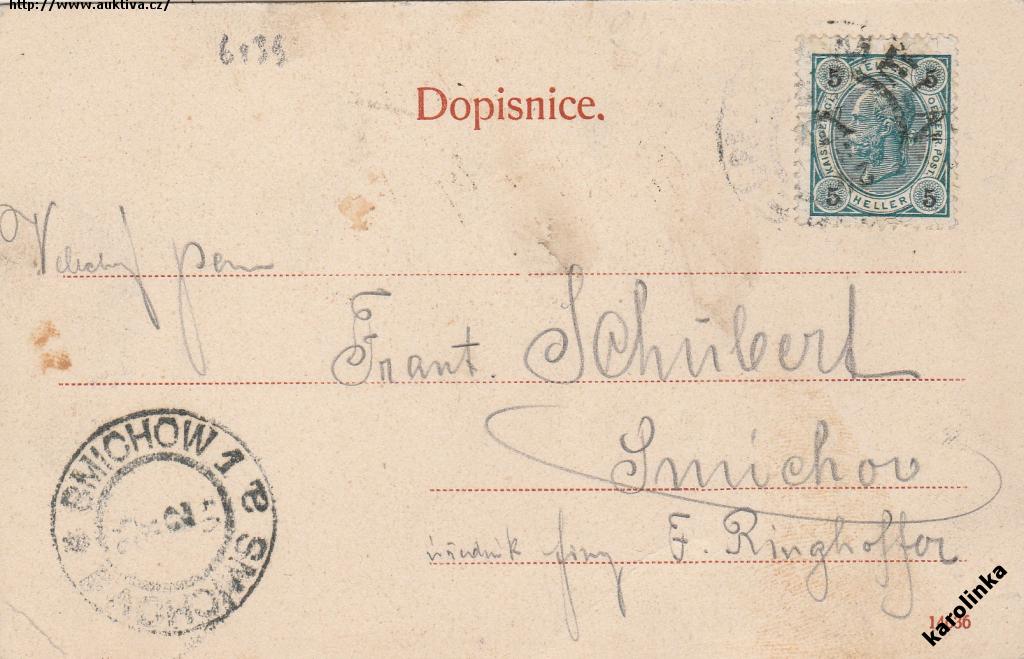 http://www.auktiva.cz/
6139
Dopisnice.
5 5
5 HELLER 5
Frant. Schubert
Smichov
úředník firmy F. Ringhoffer
SMICHOW 1
SMÍCHOV
karolinka